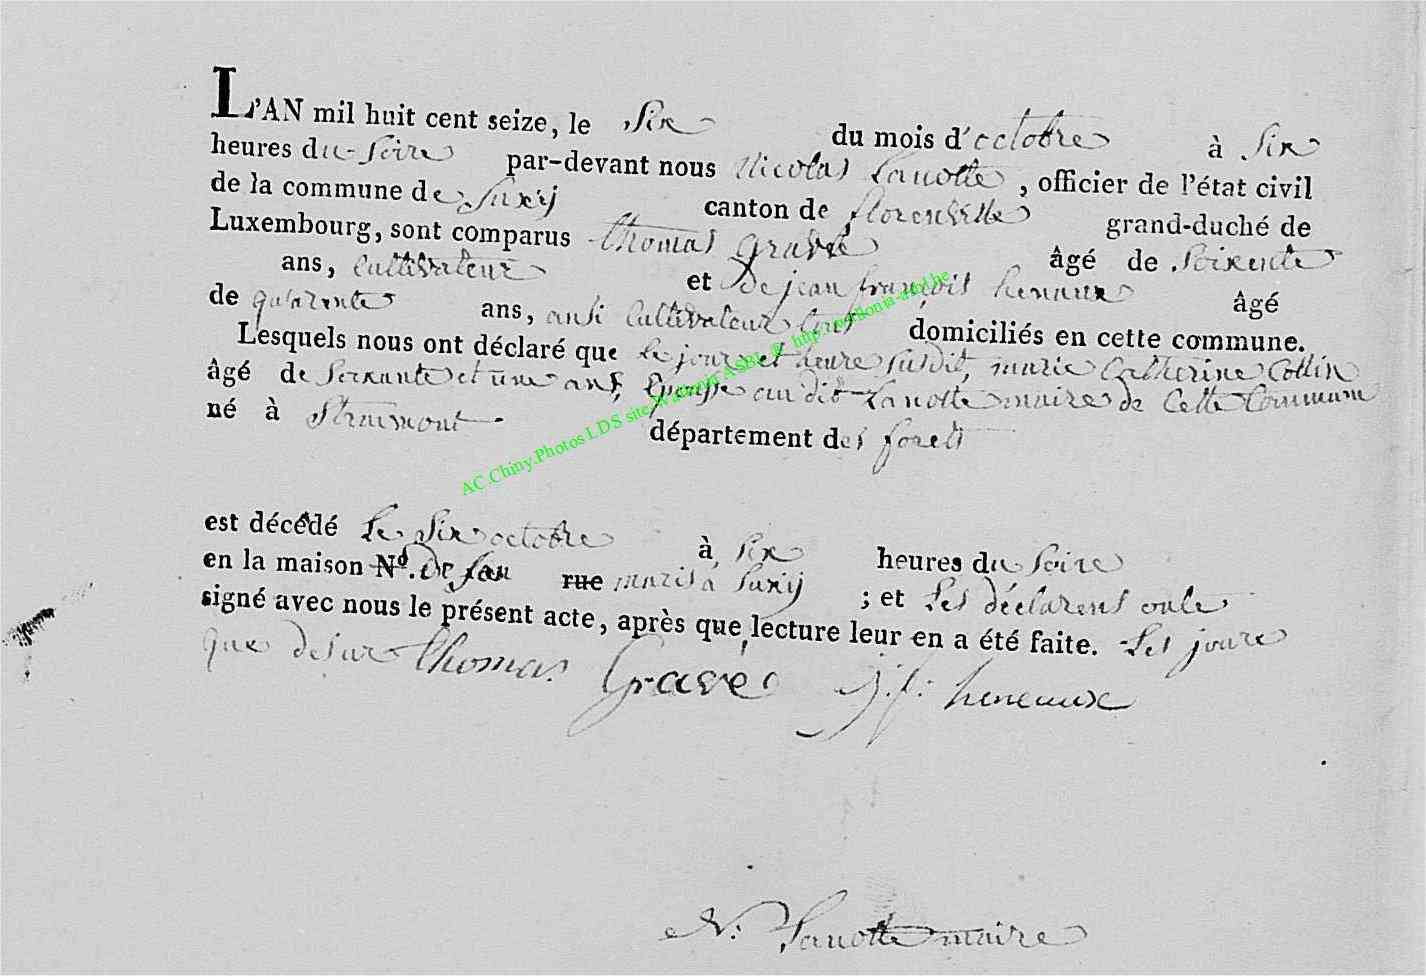 L'AN mil huit cent seize, le Six du mois d'octobre à Six
heures du Soire par-devant nous Nicolas Lanotte, officier de l'état civil
de la commune de Suxÿ canton de florenville grand-duché de
Luxembourg, sont comparus thomas gravé âgé de Soixente
ans, Cultivateur et De jean françois henaux âgé
de quarente ans, ausi Cultivateur tous domiciliés en cette commune.
Lesquels nous ont déclaré que le jour et heure Susdit, marie Catherine Collin
âgé de Soixante et une ans, Epouse au dit Lanotte maire de Cette Commune
né à Straimont département des forets
AC.Chiny.Photos LDS site Wallonia ASBL
est décédé Le Six octobre à Six heures du Soire
en la maison Nº. De Son rue maris a Suxÿ ; et Les déclarens onte
signé avec nous le présent acte, après que lecture leur en a été faite. Les joure
que desur thomas Gravé j. f. heneaux
N. Lanotte maire